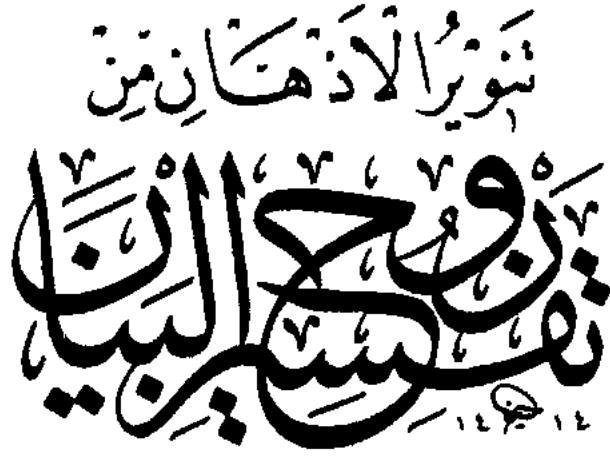 تَنْوِيْرُ الْاَذْهَانِ مِّنْ
تفسير روح البيان
١٤ ١٤